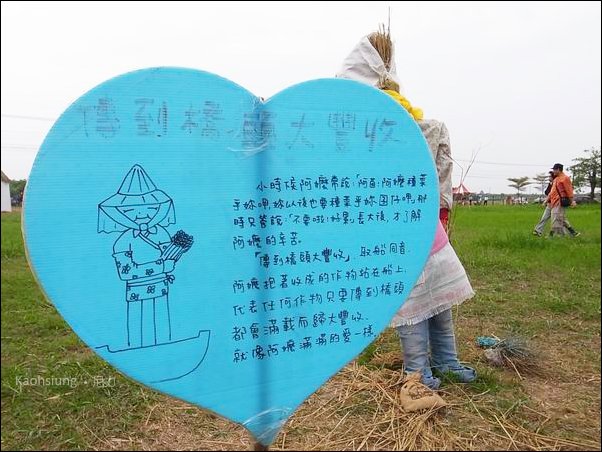 傳到橋頭大豐收
小時候阿嬤常說:「阿酋,阿嬤種菜
乎妳呷,妳以後也要種菜乎妳囝仔呷,那
時只會說:「不要啦!好累」長大後,才了解
阿嬤的辛苦。
「傳到橋頭大豐收」,取船同音.
阿嬤抱著收成的作物站在船上,
代表任何作物只要傳到橋頭
都會滿載而歸大豐收.
就像阿嬤滿滿的愛一樣.
Kaohsiung